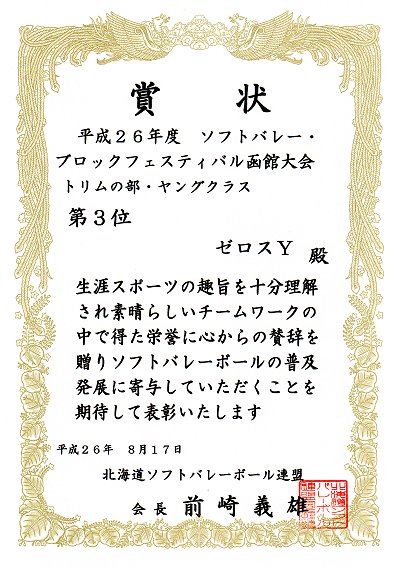 賞状
平成26年度 ソフトバレー・
ブロックフェスティバル函館大会
トリムの部・ヤングクラス
第3位
ゼロスY 殿
生涯スポーツの趣旨を十分理解
され素晴らしいチームワークの
中で得た栄誉に心からの賛辞を
贈りソフトバレーボールの普及
発展に寄与していただくことを
期待して表彰いたします
平成26年 8月17日
北海道ソフトバレーボール連盟
会長 前崎義雄